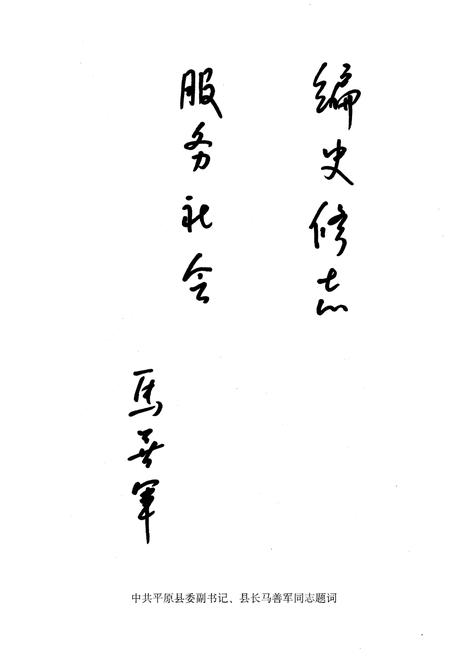 编史修志
服务社会
马善军
中共平原县委副书记、县长马善军同志题词